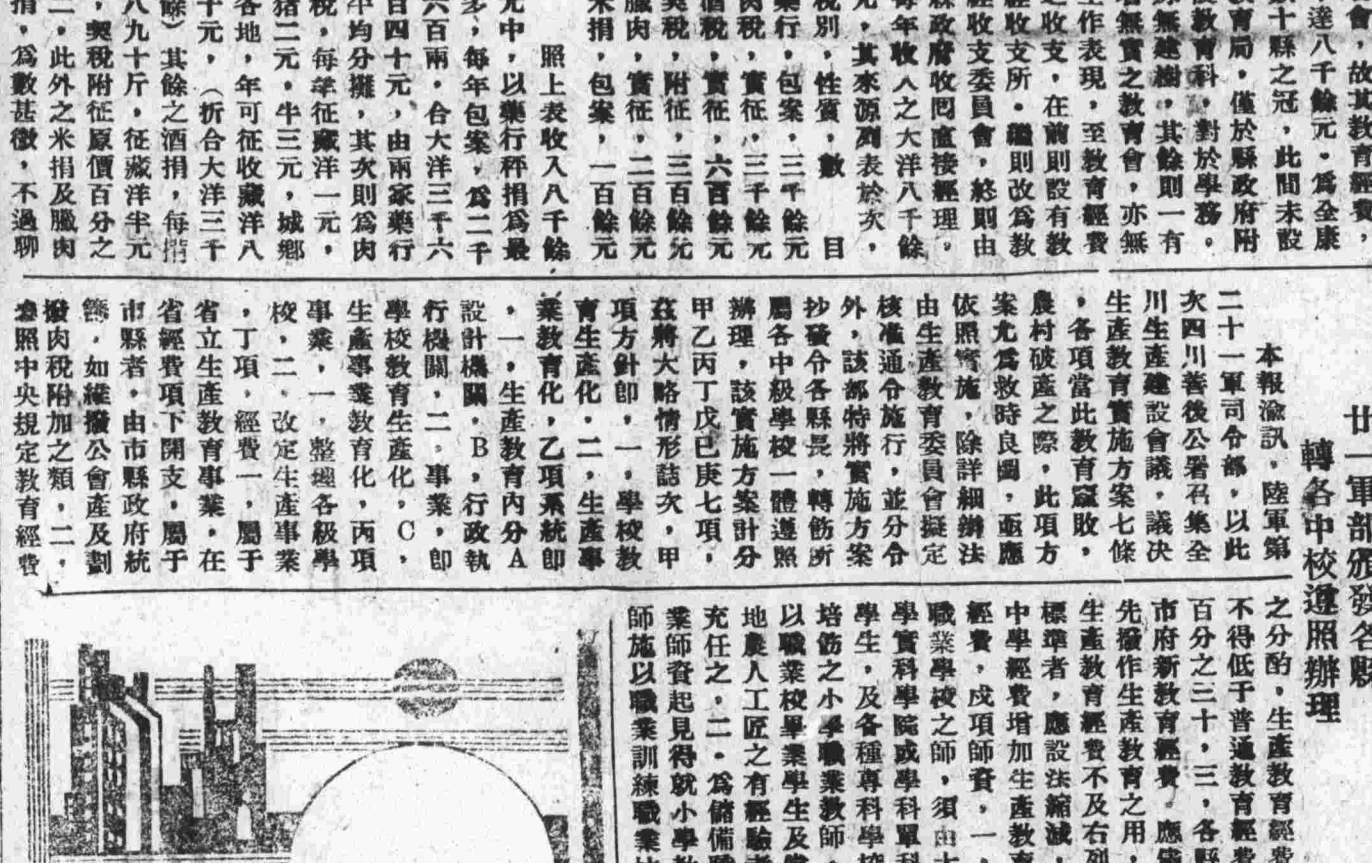 達八千餘元。爲全康
十縣之冠，此間未設
教育局，僅於縣政府附
設教育科，對於學務。
無建樹，其餘則一有
名無實之教育會，亦無
工作表現，至教育經費
之收支，在前則設有教
經收支所。繼則改爲教
經收支委員會，終則由
縣政府收問直接經理。
每年收入之大洋八千餘
元，其來源列表於次，
稅別，性質，數　目
藥行，包案，三千餘元
肉稅，實征，三千餘元
酒稅，實征，六百餘元
契稅，附征，三百餘元
臘肉，實征，二百餘元
米捐，包案，一百餘元
照上表收入八千餘
元中，以藥行秤捐爲最
多，每年包案，爲二千
六百兩，合大洋三千六
百四十元，由兩家藥行
平均分攤，其次則爲肉
稅，每羊征藏洋一元，
猪二元，牛三元，城鄉
各地，年可征收藏洋八
千元，（折合大洋三千
餘）其餘之酒捐，每
八九十斤，征藏洋半元
，契稅附征原價百分之
，此外之米捐及臘肉
捐，爲數甚微，不過聊
廿一軍部頒發各縣
轉各中校遵照辦理
本報渝訊，陸軍第
二十一軍司令部，以此
次四川善後公署召集全
川生產建設會議，議決
生產教育實施方案七條
，各項當此教育窳敗，
農村破產之際，此項方
案尤爲救時良圖，亟應
依照實施，除詳細辦法
由生產教育委員會擬定
核准通令施行，並分令
外，該部特將實施方案
抄發令各縣長，轉飭所
屬各中級學校一體遵照
辦理，該實施方案計分
甲乙丙丁戊己庚七項，
茲將大略情形誌次，甲
項方針卽，一，學校教
育生產化，二，生產事
業教育化，乙項系統卽
，一，生產教育內分A
設計機關，B，行政執
行機關，二，事業，卽
學校教育生產化，C，
生產事業教育化，丙項
事業，一，整理各級學
校，二，改定生產事業
，丁項，經費一，屬于
省立生產教育事業，在
省經費項下開支，屬于
市縣者，由市縣政府統
籌，如維撥公會產及劃
撥肉稅附加之類，二，
參照中央規定教育經費
之分酌，生產教育經費
不得低于普通教育經費
百分之三十，三，各縣
市府新教育經費，應儘
先撥作生產教育之用，
生產教育經費不及右列
標準者，應設法縮減，
中學經費增加生產教育
經費，戍項師資，一，
職業學校之師，須由大
學實科學院或學科單科
學生，及各種專科學校
培飭之小學職業教師，
以職業校畢業學生及當
地農人工匠之有經驗者
充任之，二。爲儲備職
業師資起見得就小學教
師施以職業訓練職業